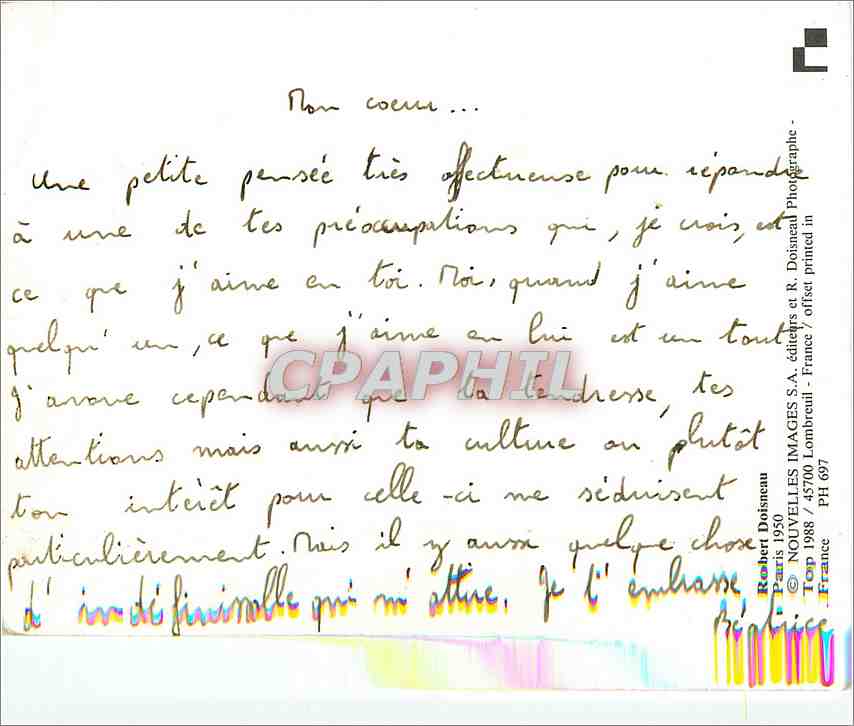 Mon coeur...
Une petite pensée très affectueuse pour répondre
à une de tes préoccupations qui, je crois, est
ce que j'aime en toi. Moi, quand j'aime
quelqu'un, ce que j'aime en lui est un tout.
J'avoue cependant que ta tendresse, tes
attentions mais aussi ta culture ou plutôt
ton intérêt pour celle-ci me séduisent
particulièrement. Mais il y aussi quelque chose
d'indéfinissable qui m'attire. Je t'embrasse
Béatrice
CPAPHIL
Robert Doisneau
Paris 1950
© NOUVELLES IMAGES S.A. éditeurs et R. Doisneau Photographe -
Top 1988 / 45700 Lombreuil - France / offset printed in
France PH 697